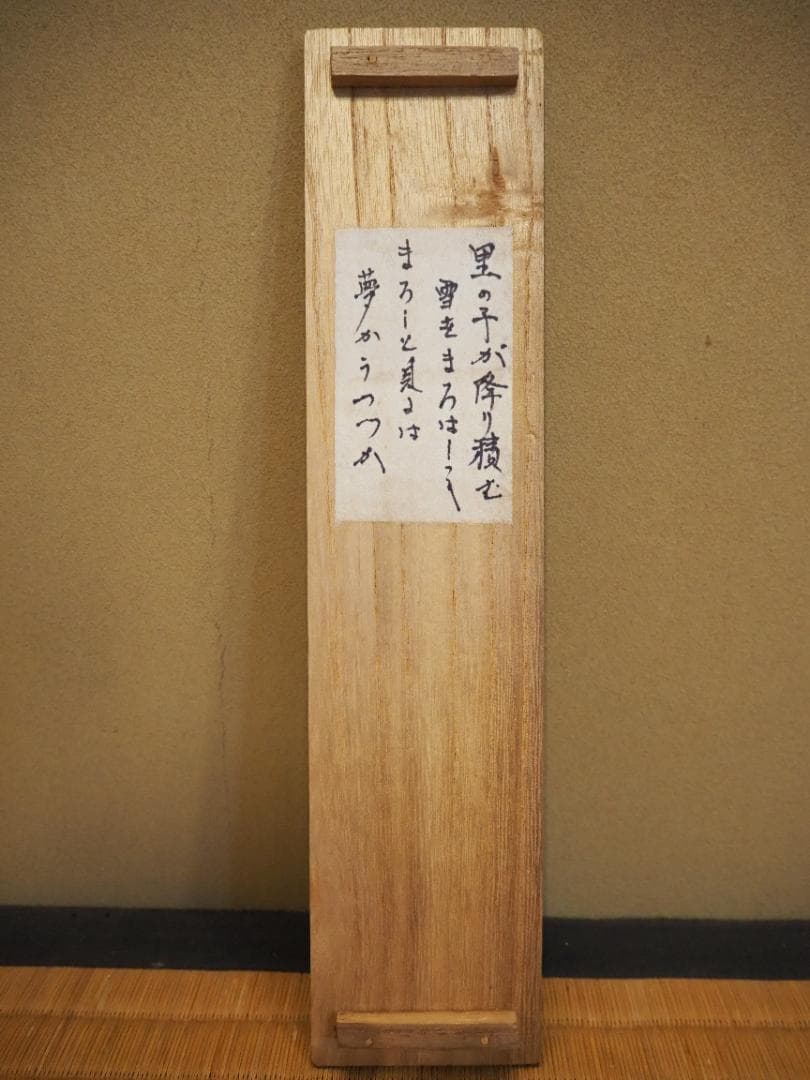 里の子が降り積む
雪をまろはして
まろしと見るは
夢かうつつか